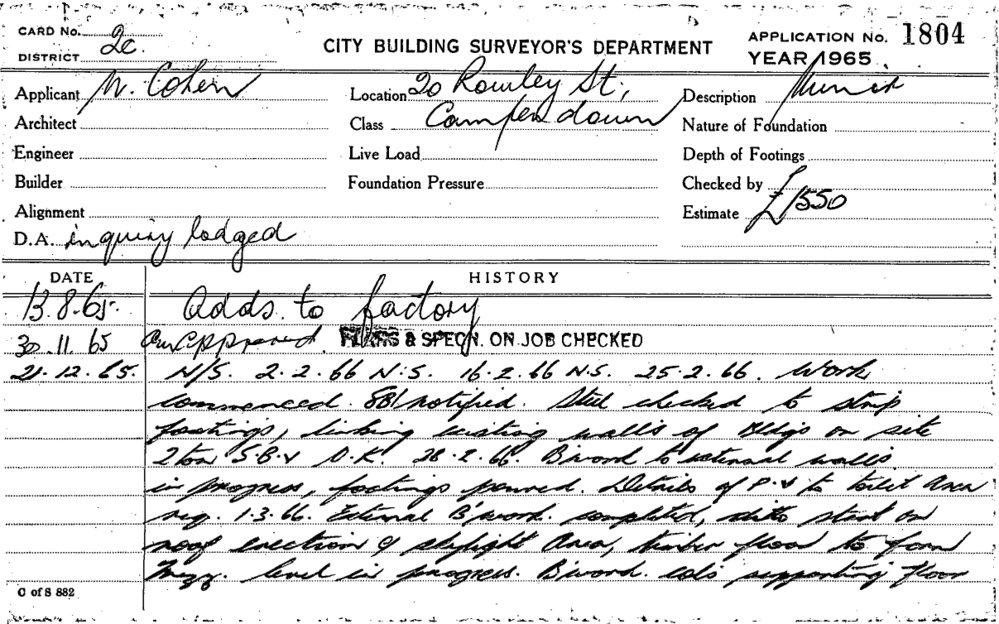 CARD No. 2c.
DISTRICT
CITY BUILDING SURVEYOR'S DEPARTMENT
APPLICATION No. 1804
YEAR 1965
Applicant N. Cohen
Location 20 Rowley St,
Description
Architect
Class Camperdown
Nature of Foundation
Engineer
Live Load
Depth of Footings
Builder
Foundation Pressure
Checked by
Alignment
Estimate £1550
D.A. inquiry lodged
DATE
HISTORY
13.8.65. Adds. to factory
30.11.65 Approved. PLANS & SPECN. ON JOB CHECKED
21.12.65. N/S. 2.2.66 N.S. 16.2.66 N.S. 25.2.66. Work
commenced. notified. Steel checked to strip
footings, linking existing walls of Bldgs on site
O.K. 28.2.66. B'word to external walls
in progress, footings poured. Details of to toilet area
req. 1.3.66. External B'work. completed, ditto start on
roof erection & skylight area, timber floor to form
Mezz. level in progress. B'word. supporting floor
C of S 882